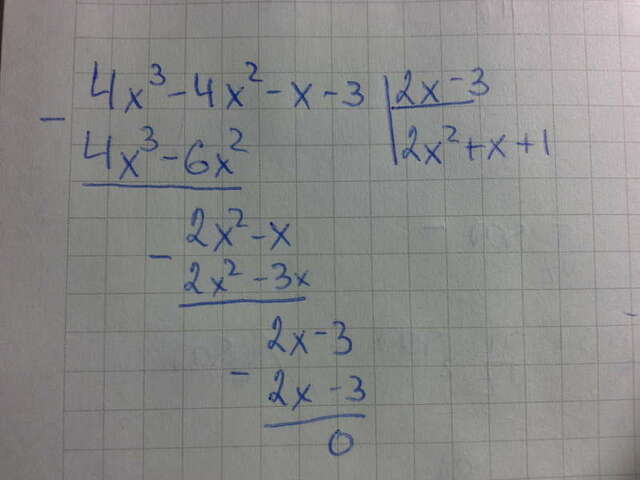 4x³-4x²-x-3 | 2x-3
- 4x³-6x² | 2x²+x+1
- 2x²-x
2x²-3x
2x-3
- 2x-3
0